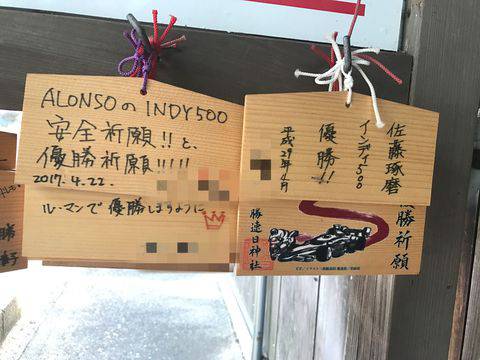 ALONSOのINDY500
安全祈願!!と、
優勝祈願!!!!!
2017.4.22.
ル・マンで優勝しますように
佐藤琢磨
インディ500
優勝!!
平成29年4月
優勝祈願
勝速日神社